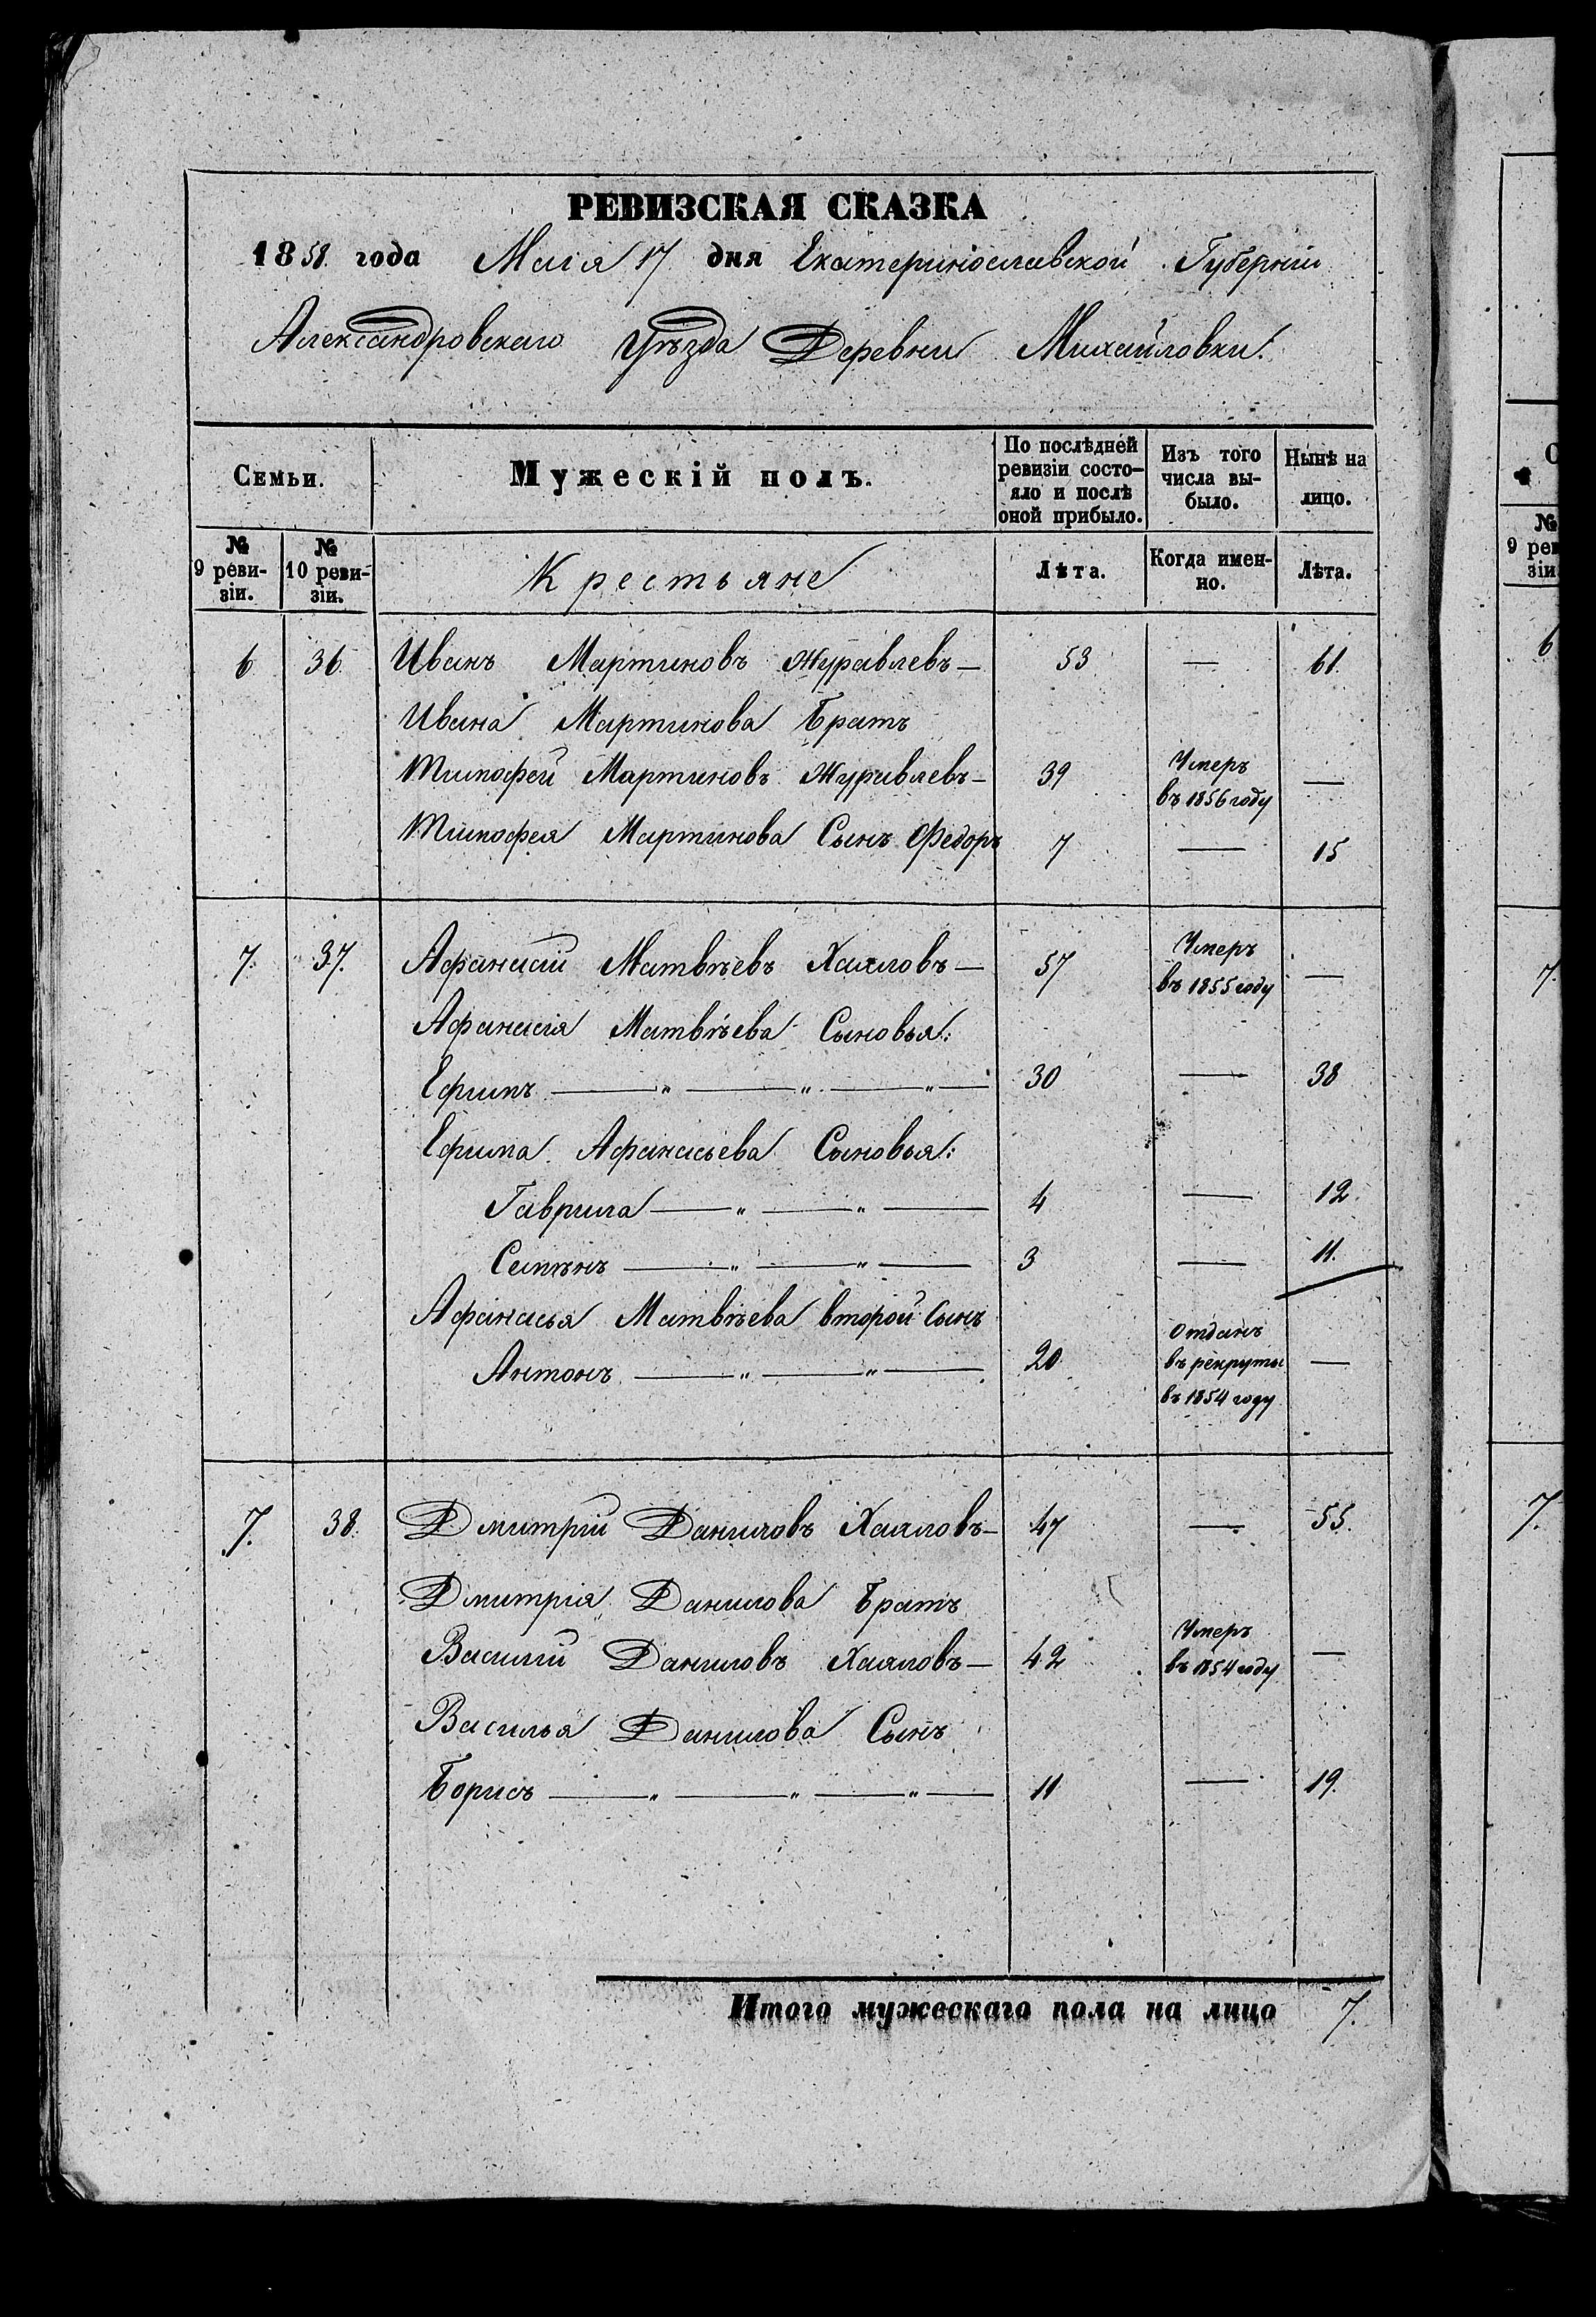 РЕВИЗСКАЯ СКАЗКА
1858 года Маія 17 дня Екатеринославской Губерніи
Александровскаго Уѣзда Деревни Михайловки.
Семьи.
Мужескій полъ.
По послѣдней ревизіи состо-яло и послѣ оной прибыло.
Изъ того числа вы-было.
Нынѣ на лицо.
№ 9 реви-зіи.
№ 10 реви-зіи.
Крестьяне
Лѣта.
Когда имен-но.
Лѣта.
6 36 Иванъ Мартиновъ Журавлевъ — 53 — 61.
Ивана Мартинова Братъ
Тимофей Мартиновъ Журавлевъ — 39 Умеръ въ 1856 году —
Тимофея Мартинова Сынъ Федоръ 7 — 15
7. 37. Афанасій Матвѣевъ Хаяловъ — 57 Умеръ въ 1855 году —
Афанасія Матвѣева Сыновья:
Ефимъ — „ — „ — „ — 30 — 38
Ефима Афанасьева Сыновья:
Гаврила — „ — „ — 4 — 12.
Семѣнъ — „ — „ — 3 — 11.
Афанасья Матвѣева второй Сынъ
Антонъ — „ — „ — 20 Отданъ въ рекруты въ 1854 году —
7. 38. Дмитрій Даниловъ Хаяловъ — 47 — 55.
Дмитрія Данилова Братъ
Василій Даниловъ Хаяловъ — 42 Умеръ въ 1854 году —
Василья Данилова Сынъ
Борисъ — „ — „ — „ — 11 — 19.
Итого мужескаго пола на лицо 7.
С
№
9 рев
зіи
6
7.
7.